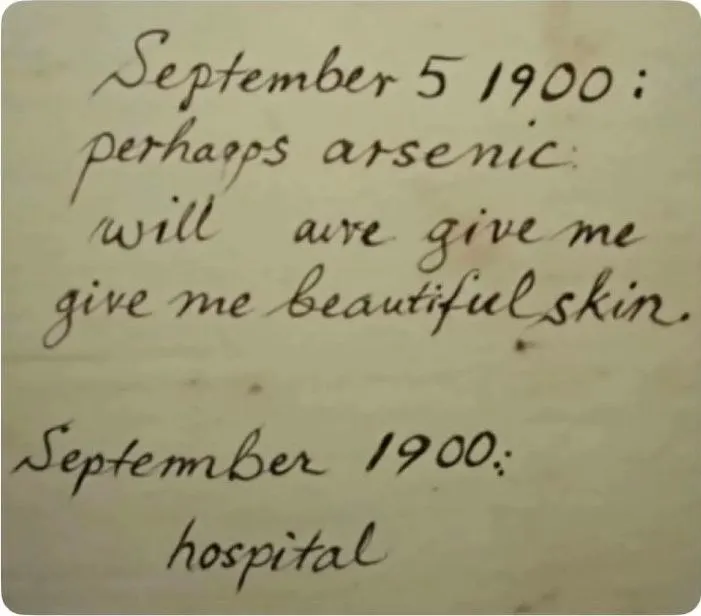 September 5 1900:
perhapps arsenic
will give me
give me beautiful skin.
Septemnber 1900:
hospital